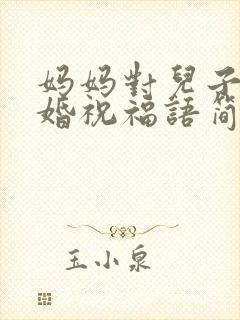 妈妈對兒子
婚祝福語简
玉小泉